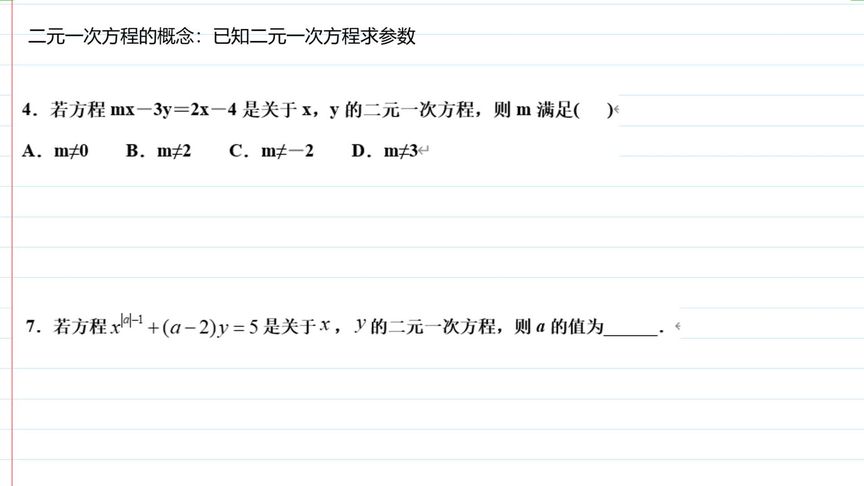 二元一次方程的概念：已知二元一次方程求参数
4．若方程 mx－3y＝2x－4 是关于 x，y 的二元一次方程，则 m 满足( )↵
A．m≠0 B．m≠2 C．m≠－2 D．m≠3↵
7．若方程 x^{|a|-1} + (a − 2)y = 5 是关于 x ， y 的二元一次方程，则 a 的值为______．↵